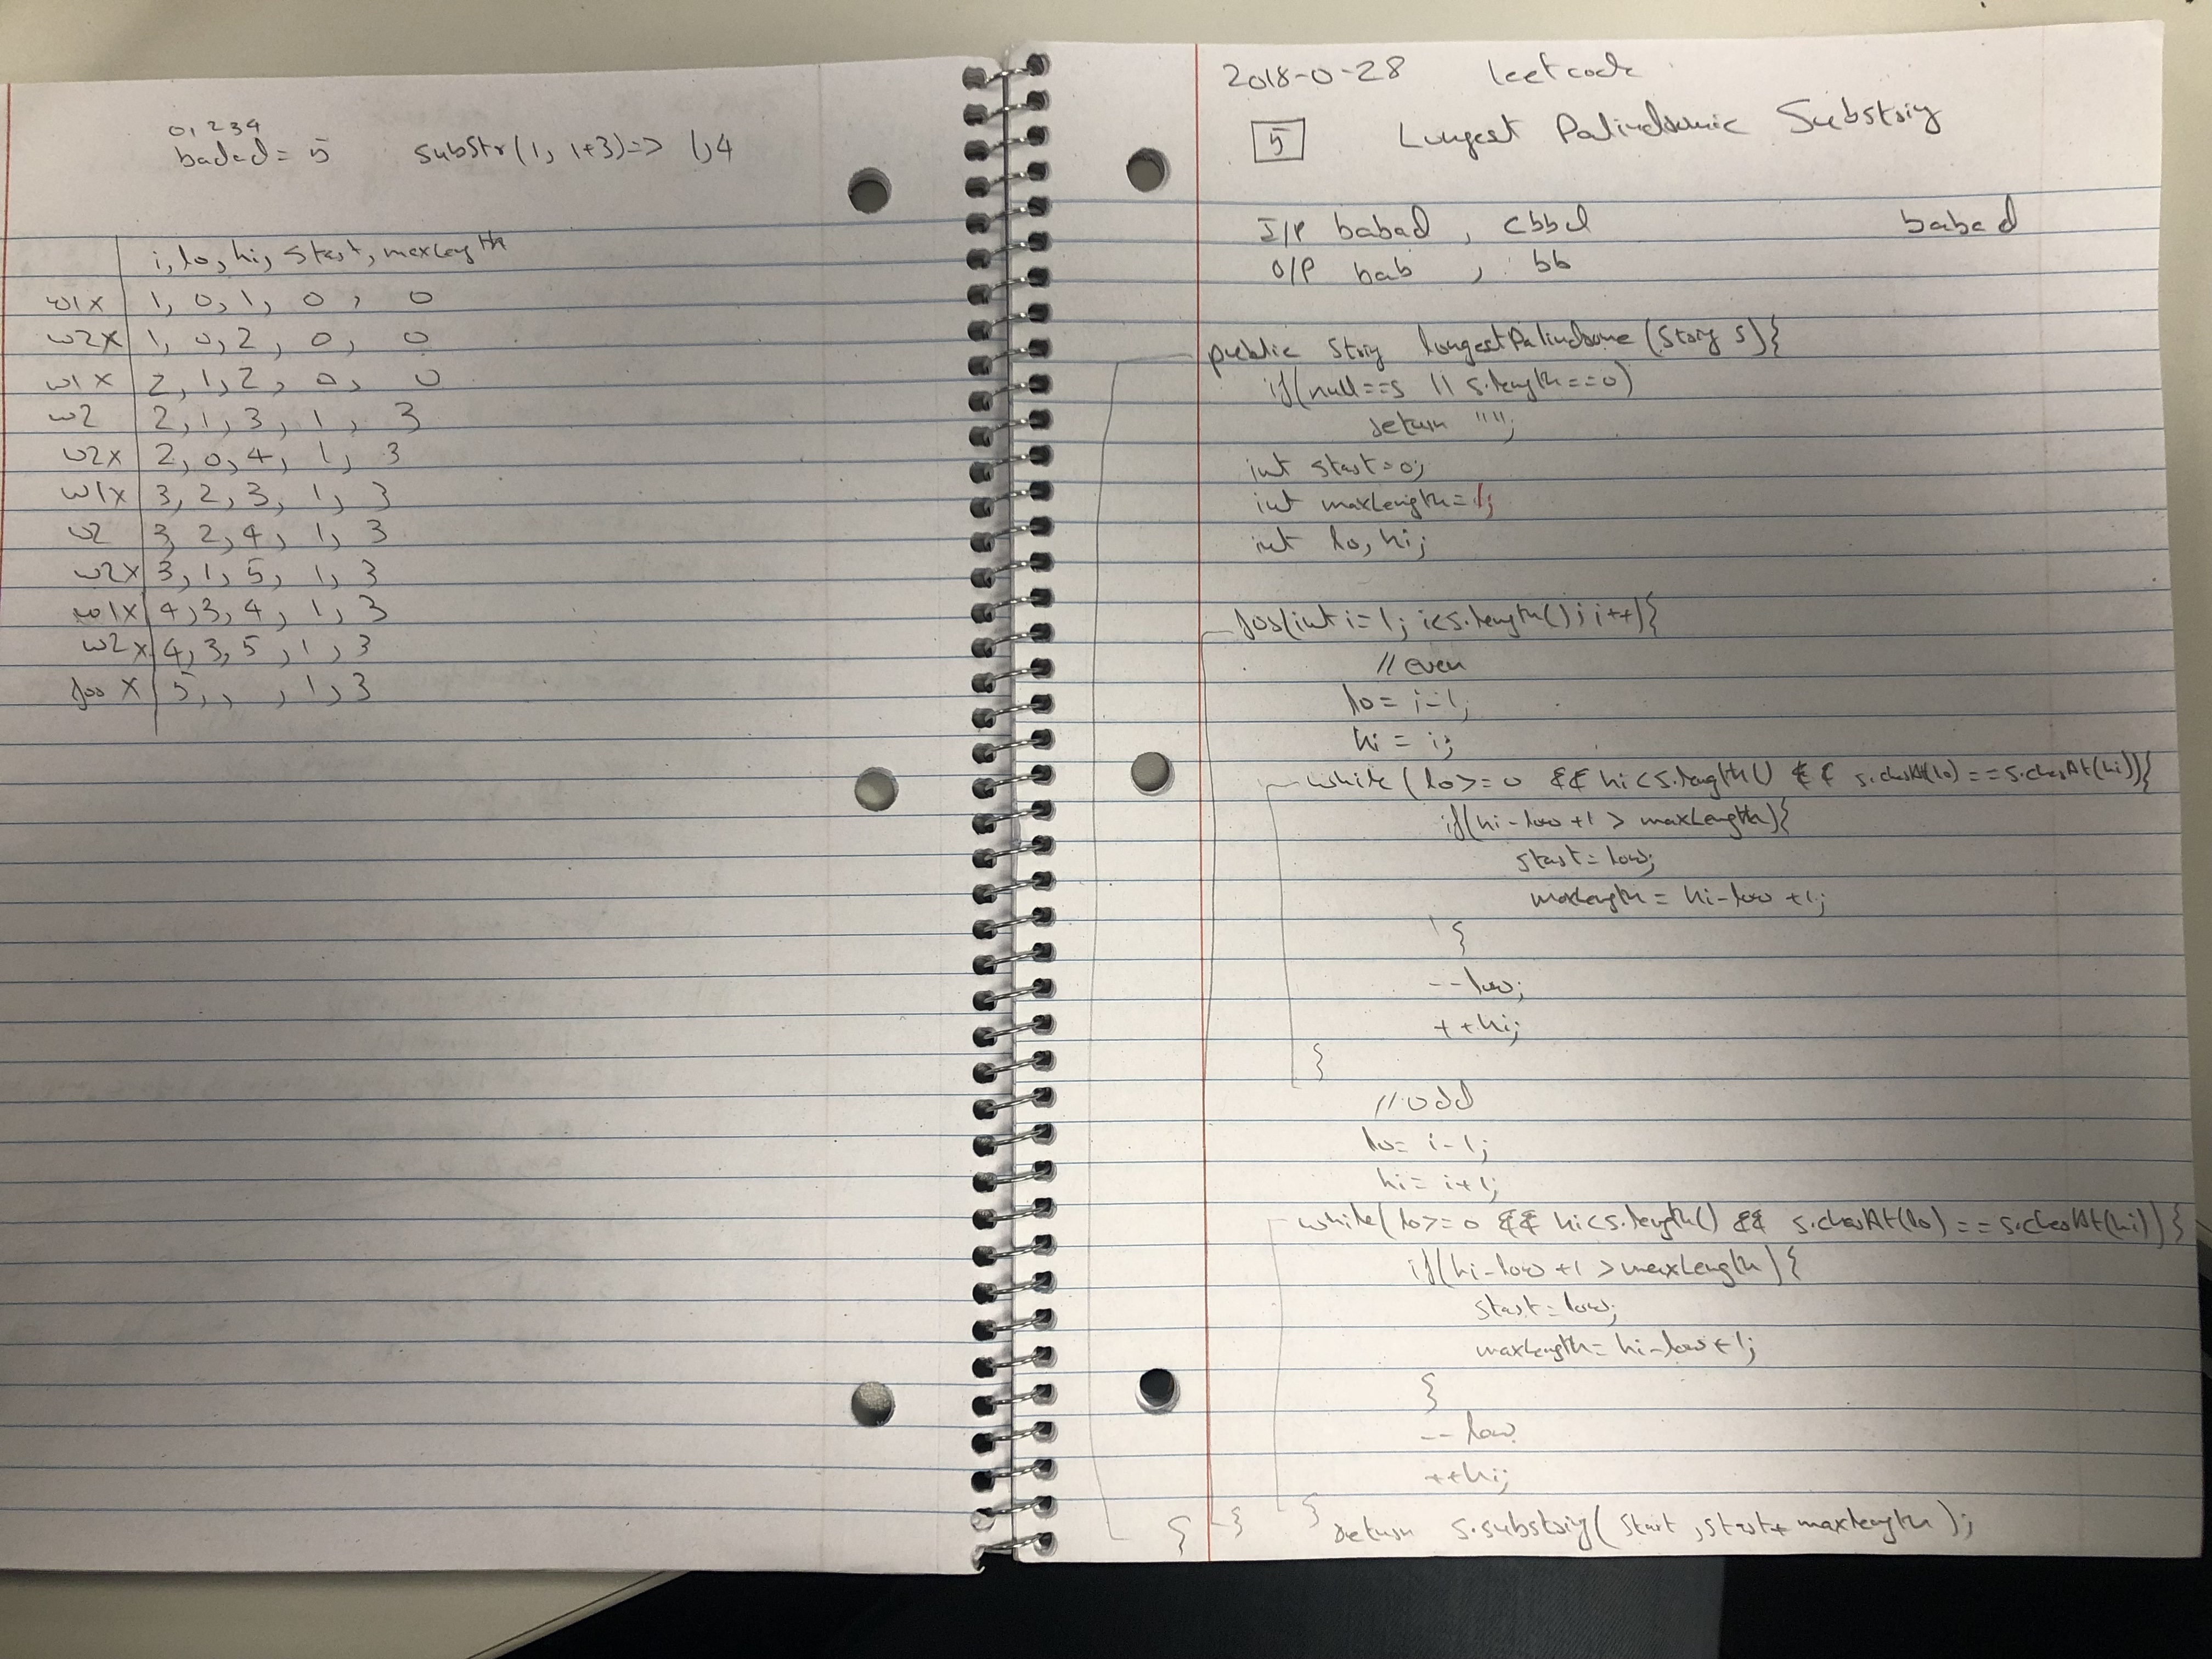 0 1 2 3 4
badad = 5 substr(1, 1+3)=> 1,4
i, lo, hi, start, maxLength
w1x 1, 0, 1, 0, 0
w2x 1, 0, 2, 0, 0
w1x 2, 1, 2, 0, 0
w2 2, 1, 3, 1, 3
w2x 2, 0, 4, 1, 3
w1x 3, 2, 3, 1, 3
w2 3, 2, 4, 1, 3
w2x 3, 1, 5, 1, 3
w1x 4, 3, 4, 1, 3
w2x 4, 3, 5, 1, 3
for X 5, , , 1, 3
2018-0-28 leetcode
5 Longest Palindromic Substring
I/P babad, cbbd babad
O/P bab, bb
public String longestPalindrome(String s){
if(null==s || s.length==0)
return "";
int start=0;
int maxLength=1;
int lo, hi;
for(int i=1; i<s.length(); i++){
//even
lo = i-1;
hi = i;
while(lo>=0 && hi<s.length() && s.charAt(lo)==s.charAt(hi)){
if(hi-low+1 > maxLength){
start=low;
maxLength = hi-low+1;
}
--low;
++hi;
}
//odd
lo= i-1;
hi= i+1;
while(lo>=0 && hi<s.length() && s.charAt(lo)==s.charAt(hi)){
if(hi-low+1 >maxLength){
start=low;
maxLength= hi-low+1;
}
--low
++hi;
} } } return s.substring(start, start+maxLength);